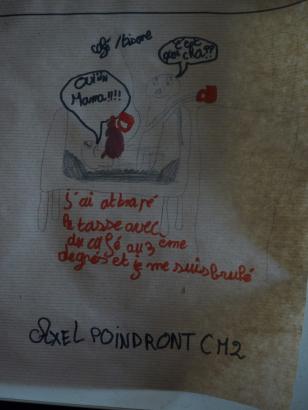 café / tisane
c'est
quoi ça??
ouïlle
Mama!!!!
j'ai attrapé
la tasse avec
du café au 3ème
degrés et je me suis brulé
AXEL POINDRONT CM2